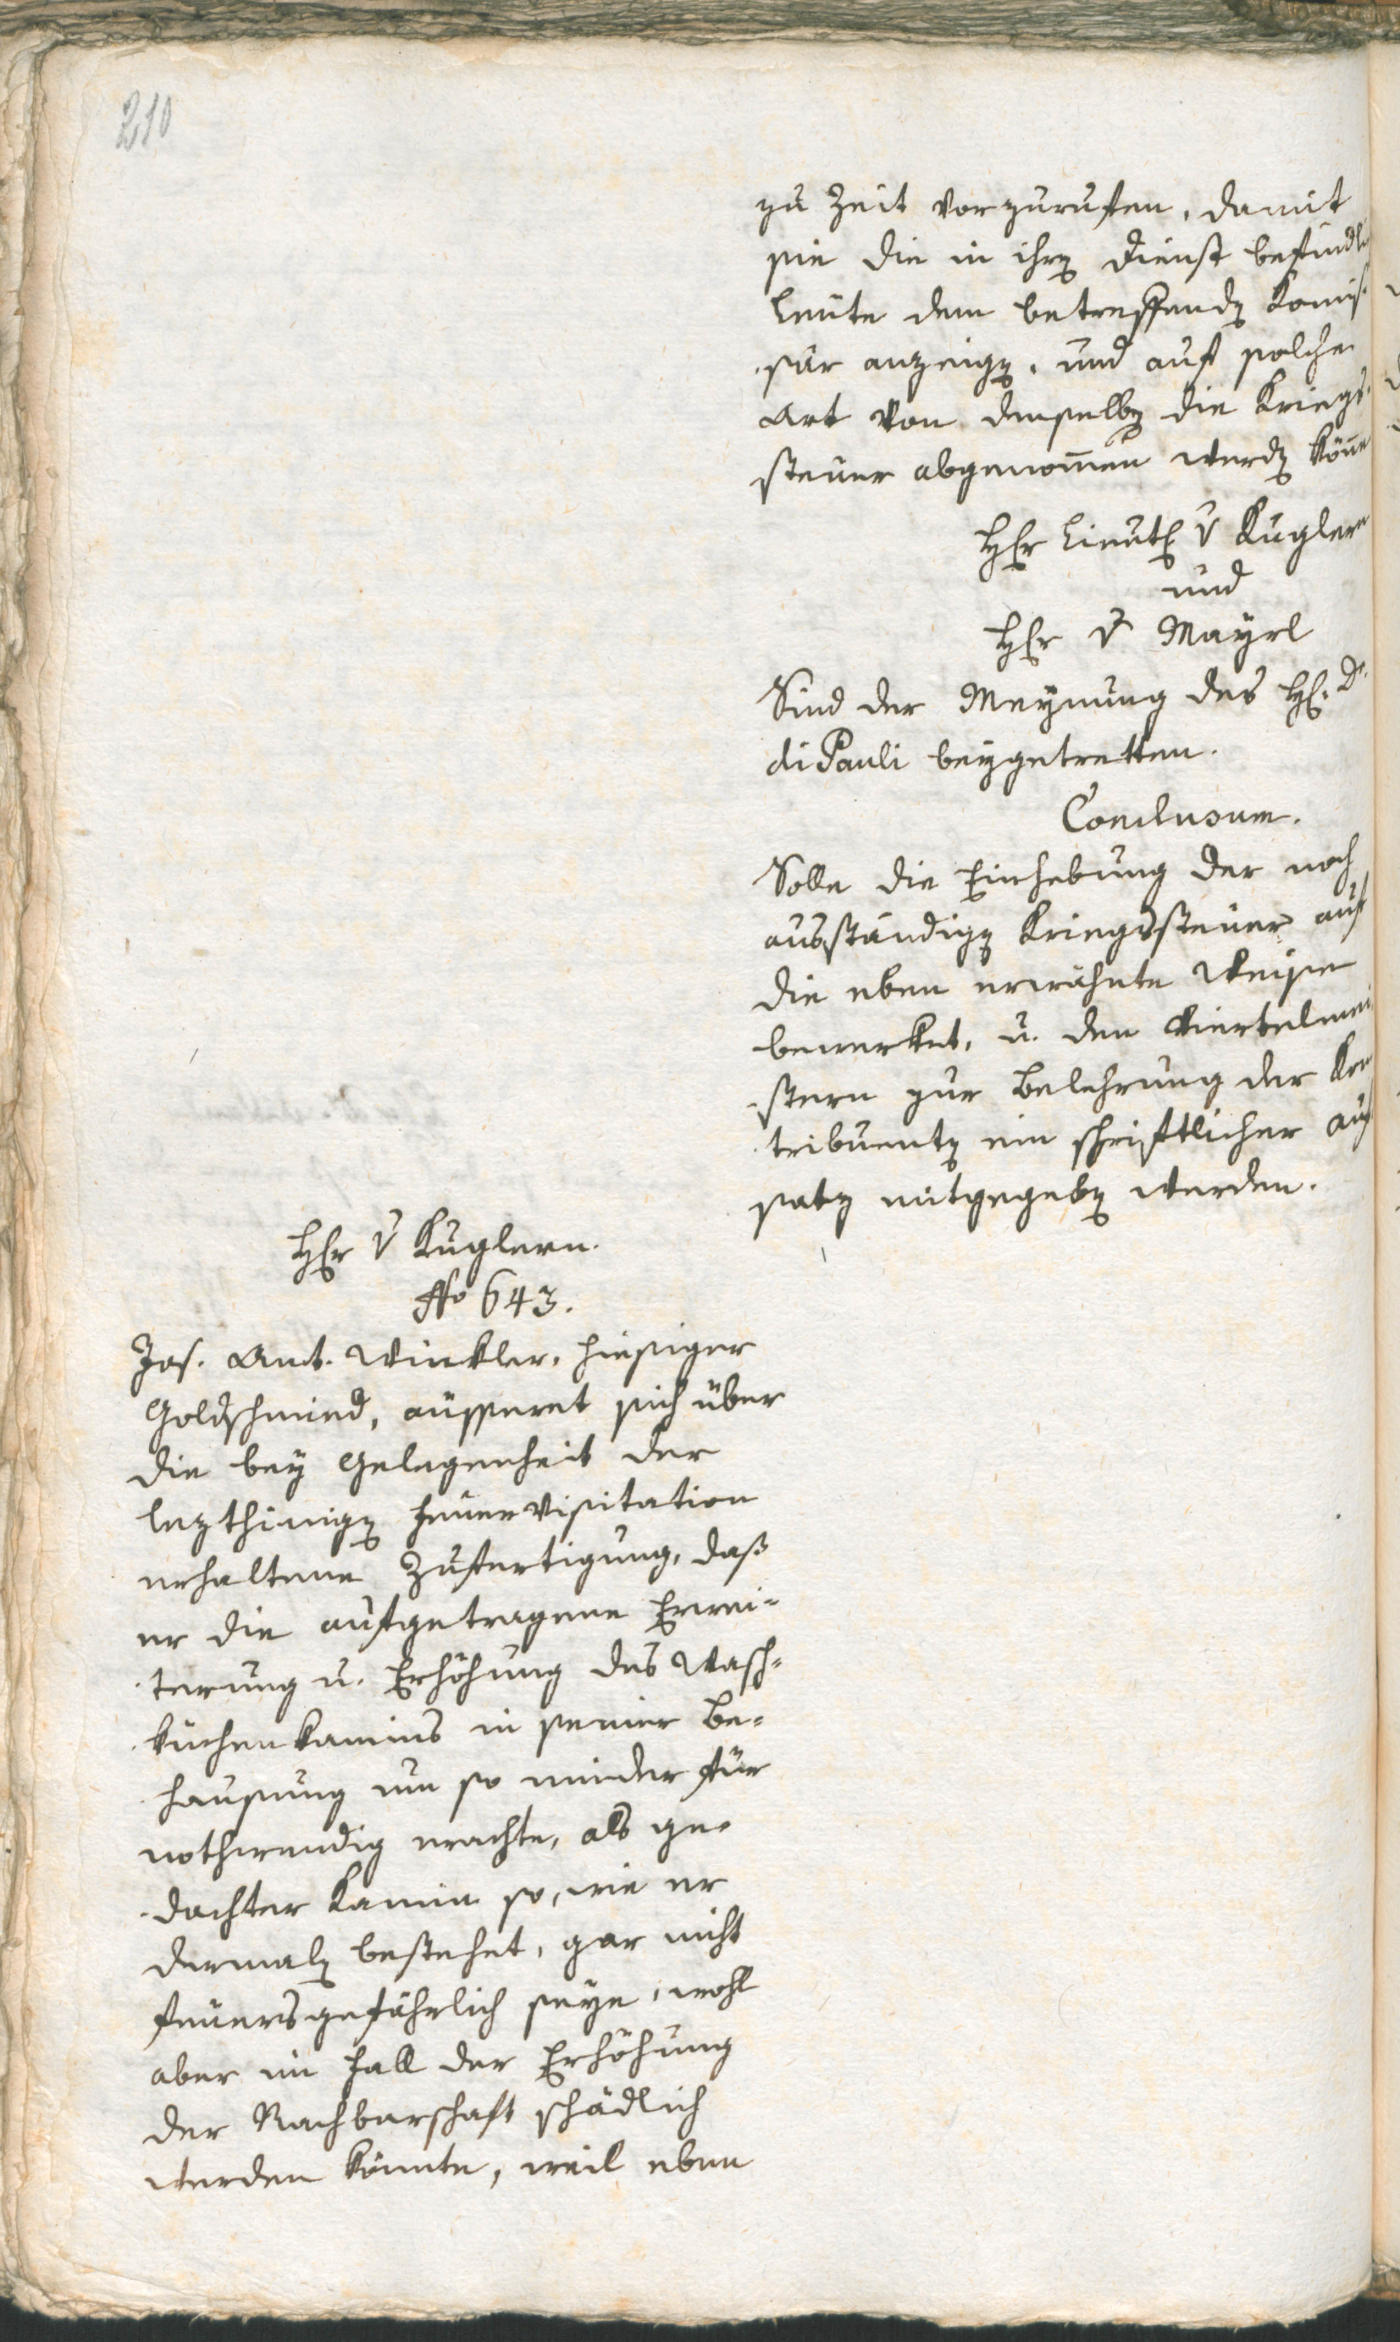 210
zu Zeit vorzurufen, damit
sie die in ihrn Dienst befindl
Leute dem betreffendn Komis-
sär anzeign, und auf solche
Art von denselbn die Kriegs-
steuer abgenommen werdn könne
Hr Lieutn v Kuglern
und
Hr v Mayrl
Sind der Meynung des H. Dr
di Pauli beygetretten.
Conclusum.
Solle die Einhebung der noch
ausständign Kriegssteuer auf
die eben erwähnte Weise
bewerket, u. den Viertelmei
stern zur Belehrung der Kon
tribuentn ein schriftlicher Auf
satz mitgegebn werden.
Hr v Kuglern.
No 643.
Jos. Ant. Winkler, hiesiger
Goldschmied, äusseret sich über
die bey Gelegenheit der
lezthinign Feuervisitation
erhaltene Zufertigung, daß
er die aufgetragene Erwei-
terung u. Erhöhung des Wasch-
kuchenkamins in seiner Be-
hausung um so minder für
nothwendig erachte, als ge-
dachter Kamin so, wie er
dermaln bestehet, gar nicht
feuersgefährlich seye, wohl
aber im Fall der Erhöhung
der Nachbarschaft schädlich
werden könnte, weil eben